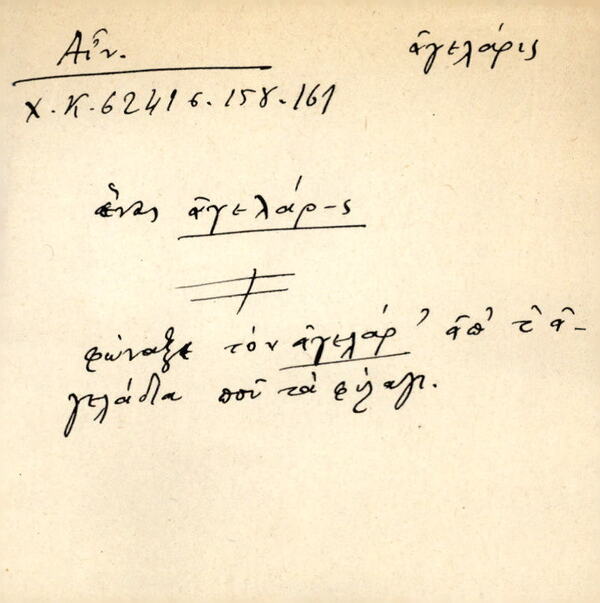 Αἶν. ἀγελάρις
Χ.Κ. 6241 σ. 158.161
ἕνας ἀγελάρ-ς
φώναξε τὸν ἀγελάρ' ἀπ' τ' ἀ-
γελάδια ποῦ τὰ φύλαγι.